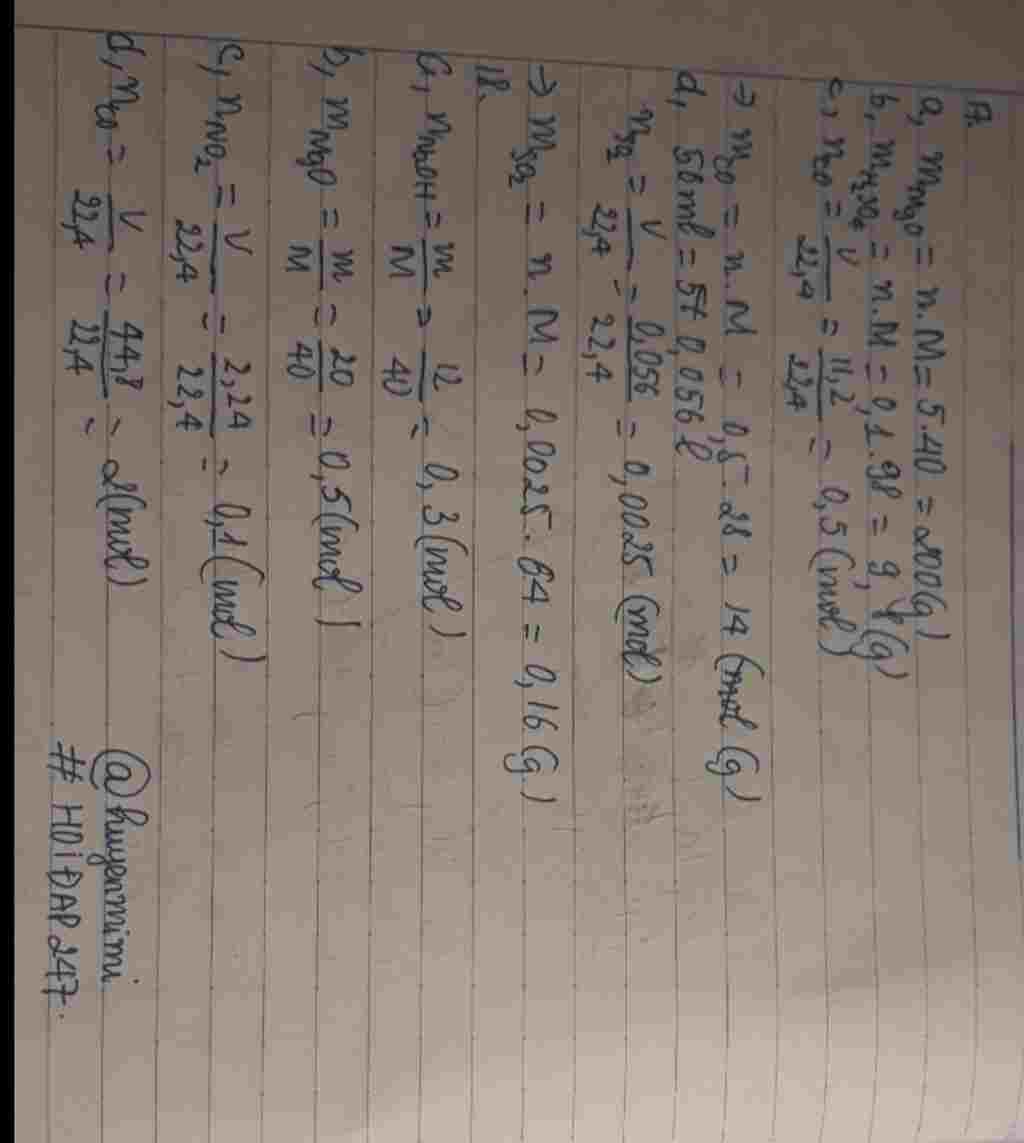 17.
a, mMgO = n.M = 5.40 = 200(g)
b, mH2SO4 = n.M = 0,1.98 = 9,8(g)
c, nCO = V/22,4 = 11,2/22,4 = 0,5(mol)
→ mCO = n.M = 0,5.28 = 14 (mol (g)
d, 56ml = 57 0,056 l
nSO2 = V/22,4 = 0,056/22,4 = 0,0025 (mol)
→ mSO2 = n.M = 0,0025.64 = 0,16 (g)
18.
a, nNaOH = m/M = 12/40 = 0,3(mol)
b, mMgO = m/M = 20/40 = 0,5(mol)
c, nNO2 = V/22,4 = 2,24/22,4 = 0,1(mol)
d, nCO = V/22,4 = 44,8/22,4 = 2(mol)
@huyenmimi
# HOIĐAP 247.